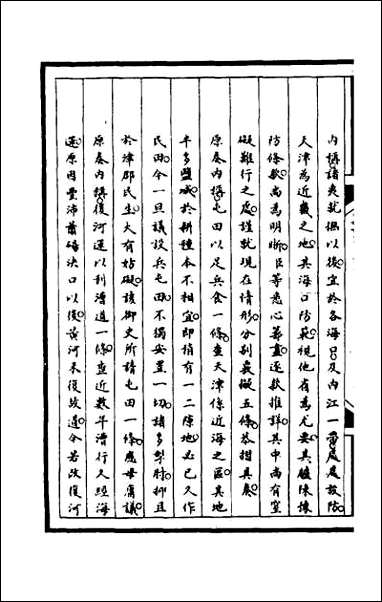 内稱諸夷就撫以後宜於各海口及内江一帶處處設防
天津為近畿之地其海口防範視他省為尤要其臚陳條
防條款尚為明晰臣等悉心籌畫逐款推詳其中尚有窒
礙難行之處謹就現在情形分别裒擬五條恭摺具奏
原奏内稱屯田以足兵食一條查天津係近海之區其地
半多鹽堿於耕種本不相宜即稍有一二隙地必已久作
民田今一旦議設兵屯田不獨安置一切諸多掣肘抑且
於津郡民生大有妨礙該御史所請屯田一條應毋庸議
原奏内稱復河運以利漕道一條查近數年漕行久經海
運原因豐沛蕭碭決口以後黄河未復故道今若改復河